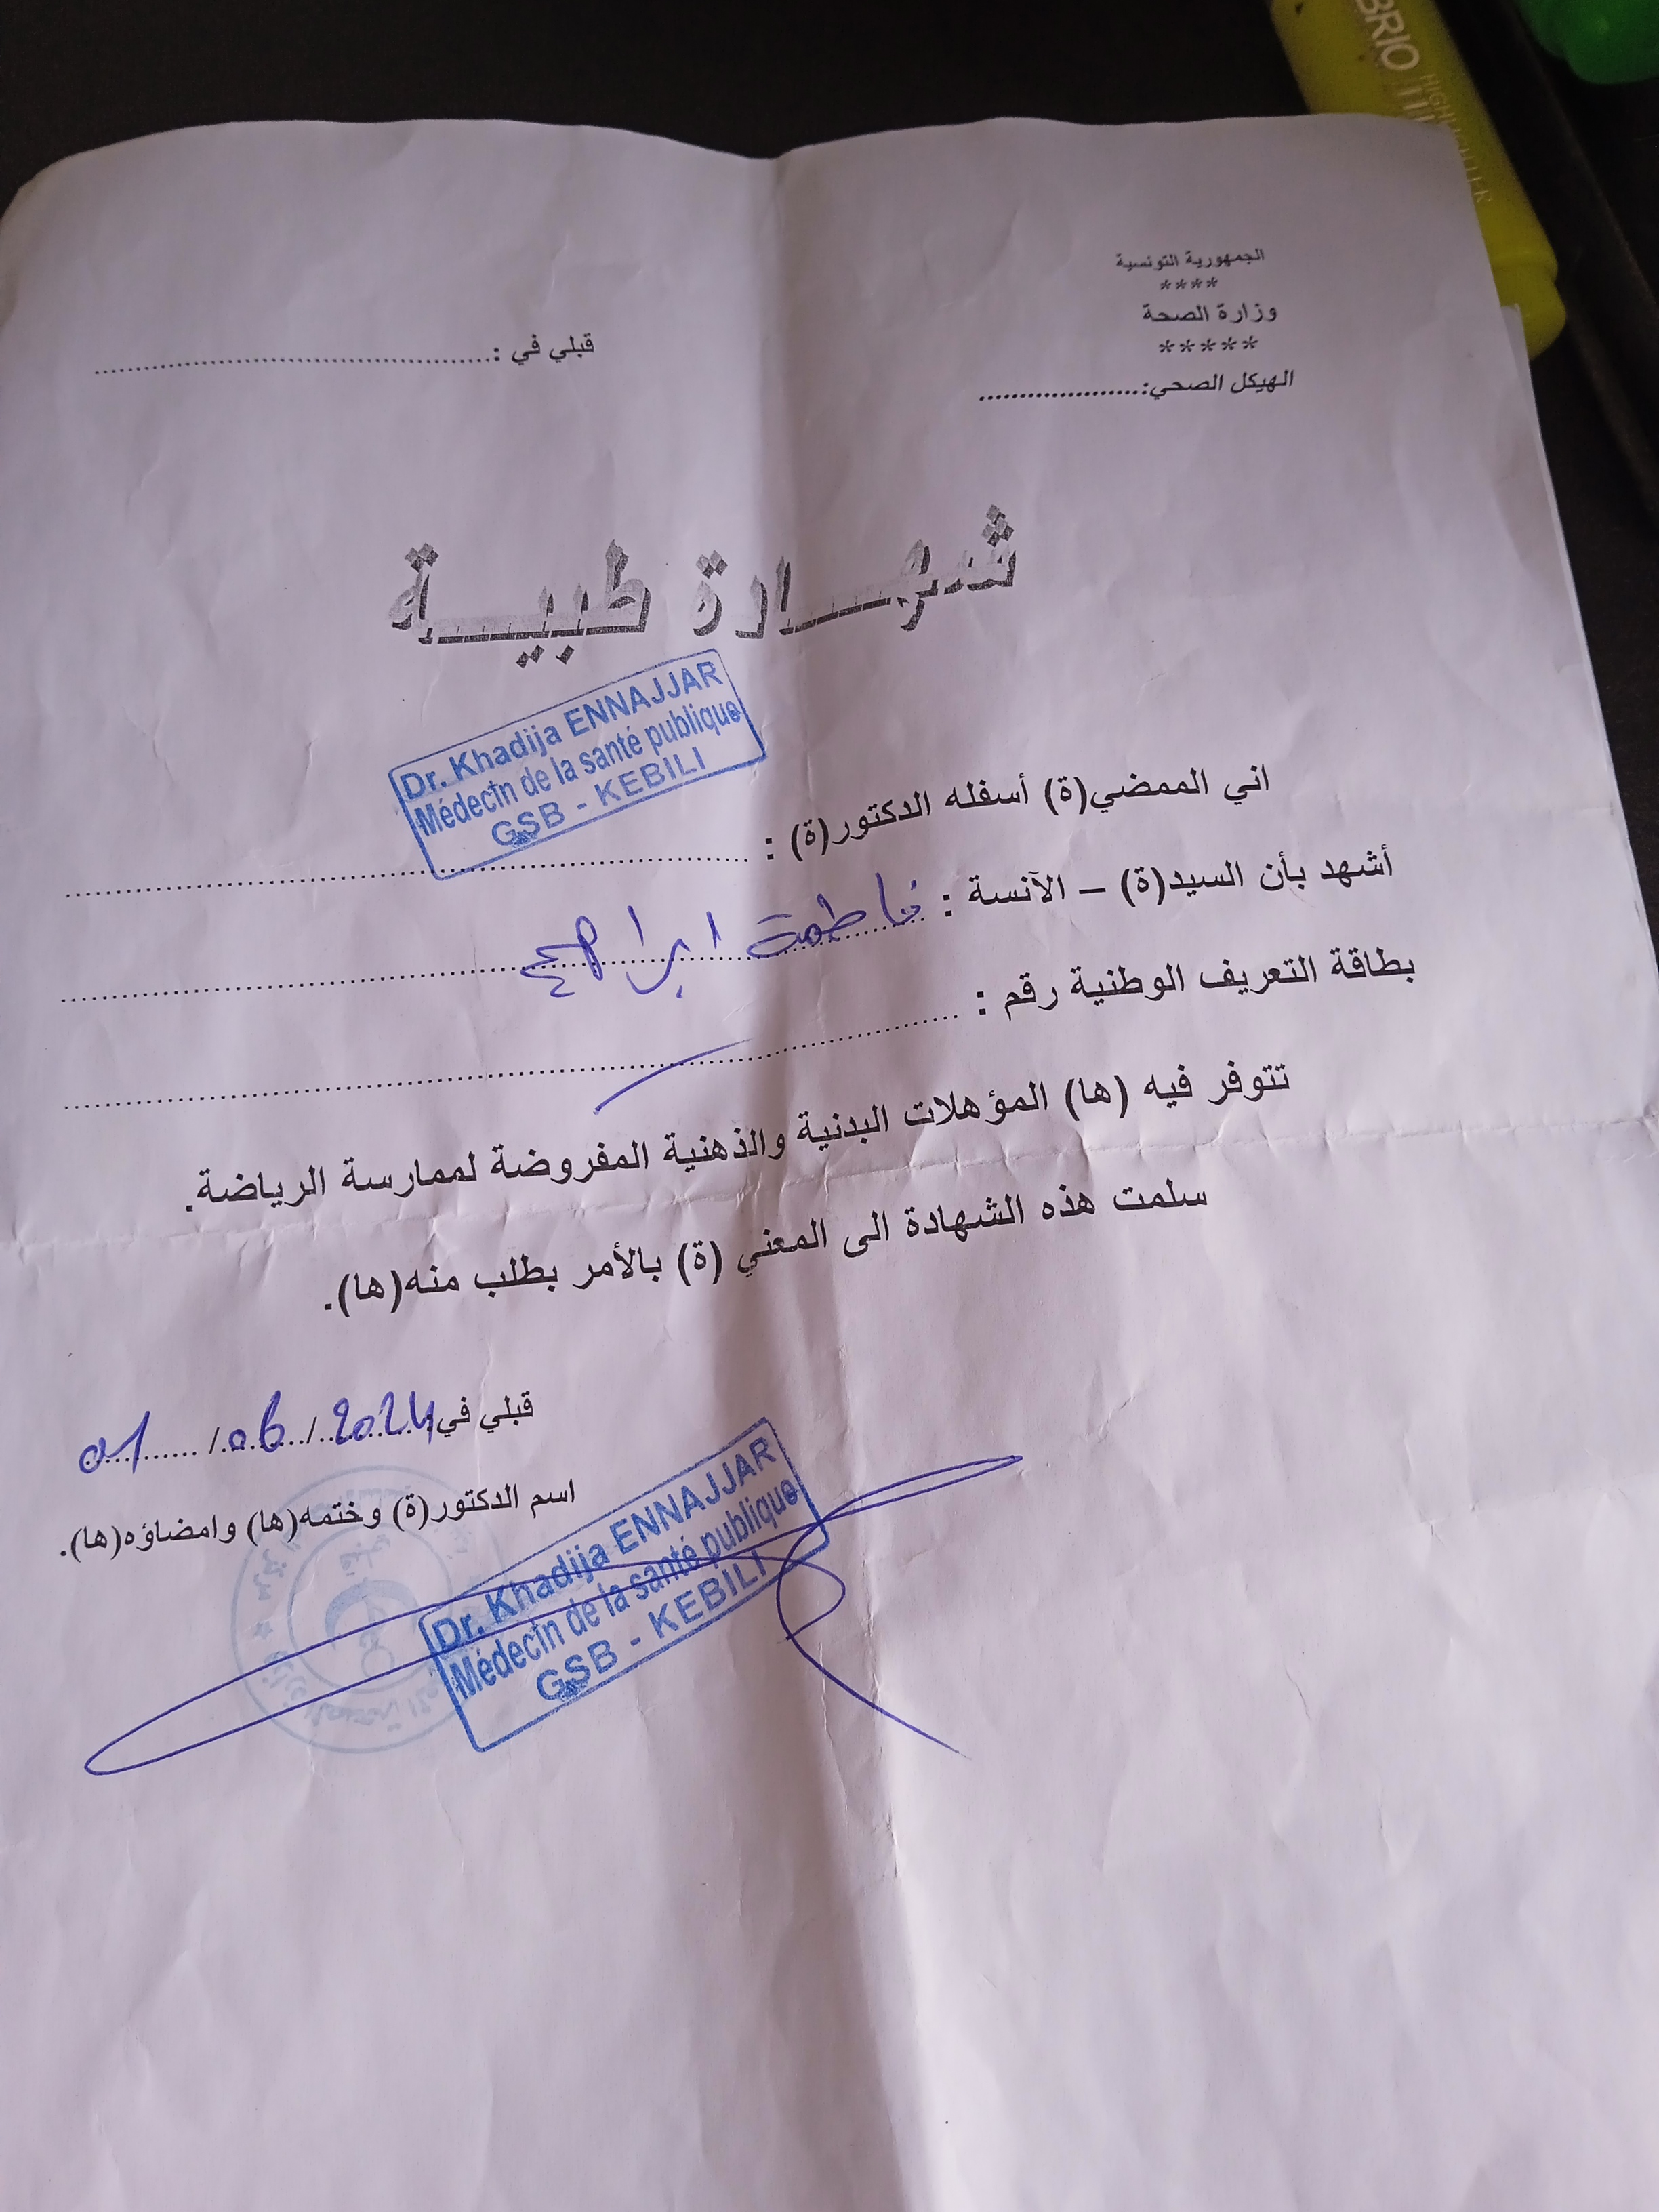 BRIO
HIGHLIGHTER
الجمهورية التونسية
****
وزارة الصحة
*****
الهيكل الصحي:.....................
قبلي في :.............................................
شهـــادة طبيـــة
Dr. Khadija ENNAJJAR
Médecin de la santé publique
GSB - KEBILI
اني الممضي(ة) أسفله الدكتور(ة) : ..........................................................................
أشهد بأن السيد(ة) – الآنسة : فاطمة ابراهيم
بطاقة التعريف الوطنية رقم : ..........................................................................
تتوفر فيه (ها) المؤهلات البدنية والذهنية المفروضة لممارسة الرياضة.
سلمت هذه الشهادة الى المعني (ة) بالأمر بطلب منه(ها).
قبلي في 01/06/2024
اسم الدكتور(ة) وختمه(ها) وامضاؤه(ها).
Dr. Khadija ENNAJJAR
Médecin de la santé publique
GSB - KEBILI